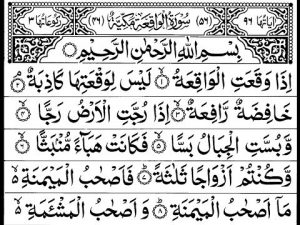 اٰيَاتُهَا ٩٦ (٥٦) سُوْرَةُ الْوَاقِعَةِ مَكِّيَّةٌ (٤٦) رُكُوْعَاتُهَا ٣
بِسْمِ اللّٰهِ الرَّحْمٰنِ الرَّحِيْمِ
اِذَا وَقَعَتِ الْوَاقِعَةُ ۙ﴿١﴾ لَيْسَ لِوَقْعَتِهَا كَاذِبَةٌ ۘ﴿٢﴾
خَافِضَةٌ رَّافِعَةٌ ۙ﴿٣﴾ اِذَا رُجَّتِ الْاَرْضُ رَجًّا ۙ﴿٤﴾
وَّ بُسَّتِ الْجِبَالُ بَسًّا ۙ﴿٥﴾ فَكَانَتْ هَبَآءً مُّنْۢبَثًّا ۙ﴿٦﴾
وَّ كُنْتُمْ اَزْوَاجًا ثَلٰثَةً ؕ﴿٧﴾ فَاَصْحٰبُ الْمَيْمَنَةِ ۙ۬
مَاۤ اَصْحٰبُ الْمَيْمَنَةِ ؕ﴿٨﴾ وَ اَصْحٰبُ الْمَشْـَٔمَةِ ۙ۬